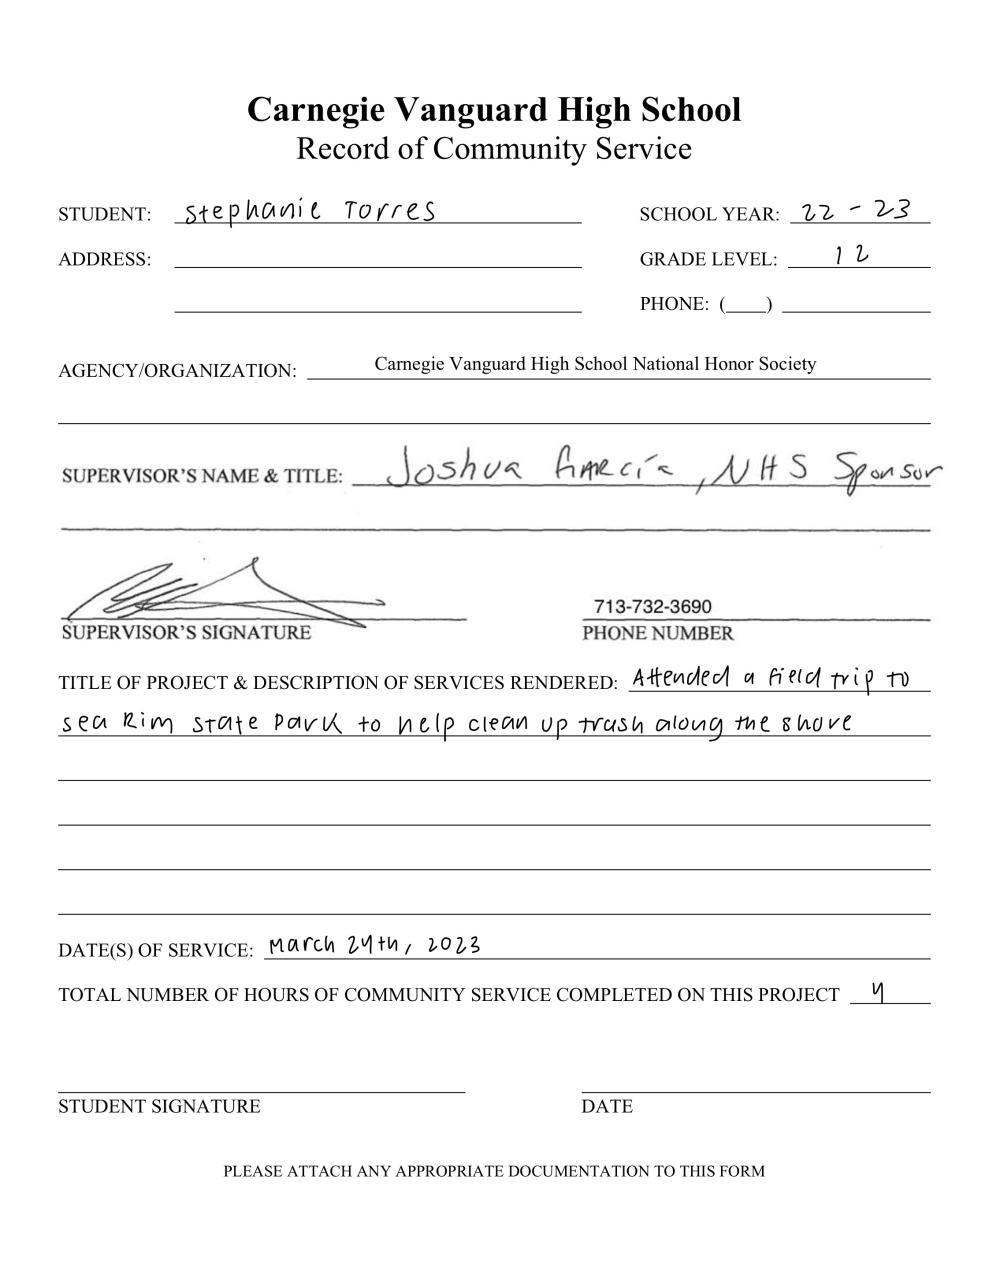 Carnegie Vanguard High School
Record of Community Service
STUDENT: Stephanie Torres SCHOOL YEAR: 22 - 23
ADDRESS: GRADE LEVEL: 12
PHONE: (____)
AGENCY/ORGANIZATION: Carnegie Vanguard High School National Honor Society
SUPERVISOR'S NAME & TITLE: Joshua García, NHS Sponsor
713-732-3690
SUPERVISOR'S SIGNATURE PHONE NUMBER
TITLE OF PROJECT & DESCRIPTION OF SERVICES RENDERED: Attended a field trip to
Sea Rim State Park to help clean up trash along the shore
DATE(S) OF SERVICE: March 24th, 2023
TOTAL NUMBER OF HOURS OF COMMUNITY SERVICE COMPLETED ON THIS PROJECT 4
STUDENT SIGNATURE DATE
PLEASE ATTACH ANY APPROPRIATE DOCUMENTATION TO THIS FORM